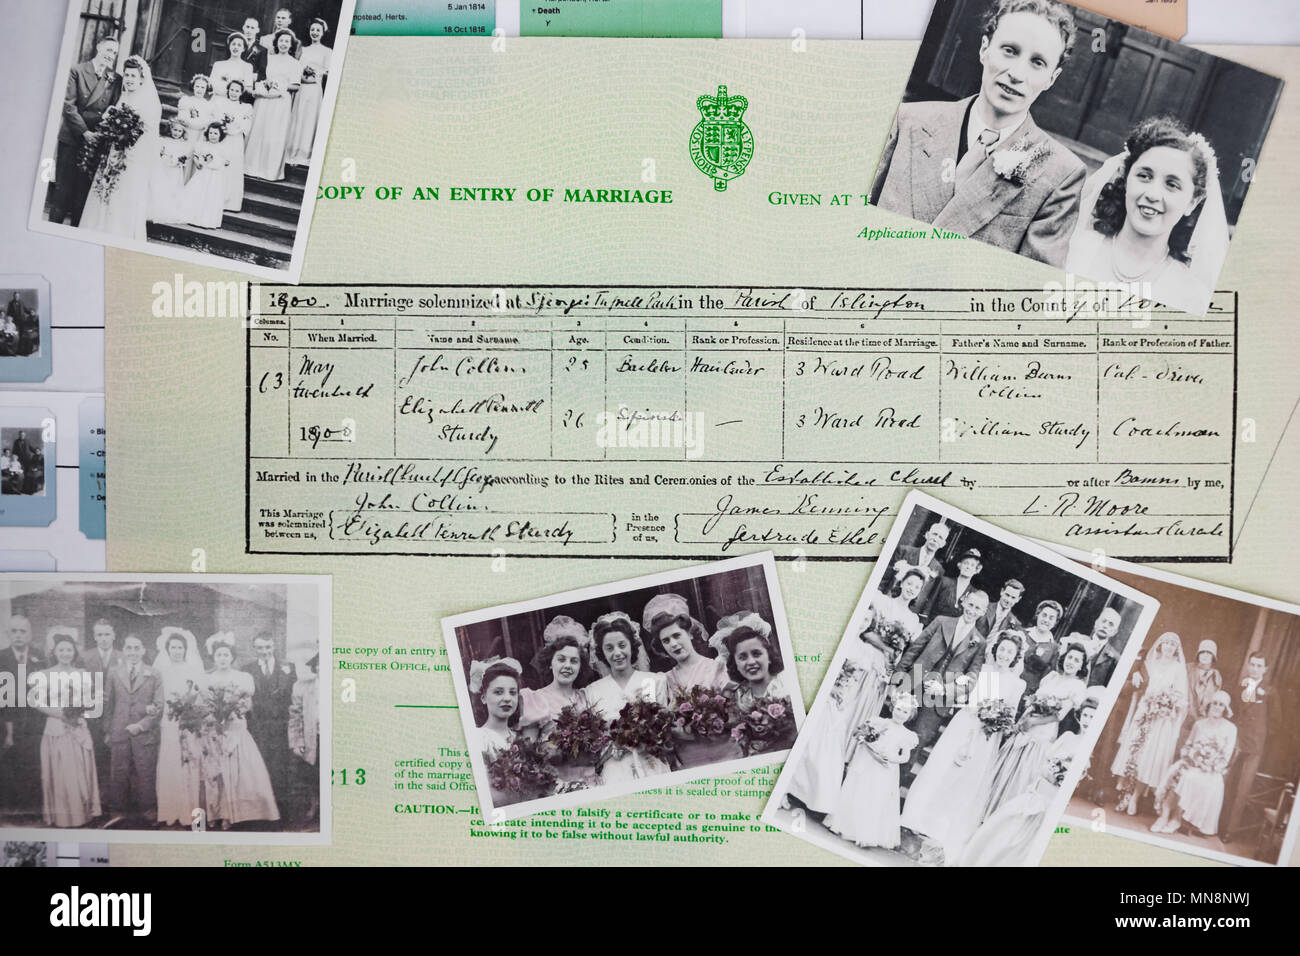 5 Jan 1814
Herts.
18 Oct 1818
Death
Y
COPY OF AN ENTRY OF MARRIAGE
GIVEN AT
Application Num
1900. Marriage solemnized at St Georges Tufnell Park in the Parish of Islington in the County of London
Columns. 1 2 3 4 5 6 7 8
No. When Married. Name and Surname. Age. Condition. Rank or Profession. Residence at the time of Marriage. Father's Name and Surname. Rank or Profession of Father.
63 May twentieth 1900
John Collins 25 Bachelor Haircutter 3 Ward Road William Burns Collins Cab-driver
Elizabeth Penrith Sturdy 26 Spinster — 3 Ward Road William Sturdy Coachman
Married in the Parish Church according to the Rites and Ceremonies of the Established Church by or after Banns by me,
This Marriage was solemnized between us,
John Collins
Elizabeth Penrith Sturdy
in the Presence of us,
James Kenning
Gertrude Ethel
L. R. Moore
Assistant Curate
true copy of an entry in
REGISTER OFFICE, und
ct of
This c
certified copy
of the marriage
in the said Offic
other proof of the
ness it is sealed or stampe
213
CAUTION.—It ence to falsify a certificate or to make
certificate intending it to be accepted as genuine to the
knowing it to be false without lawful authority.
Form A513MX
HONI SOIT
MAL Y PENSE
alamy
Image ID: MN8NWJ
www.alamy.com